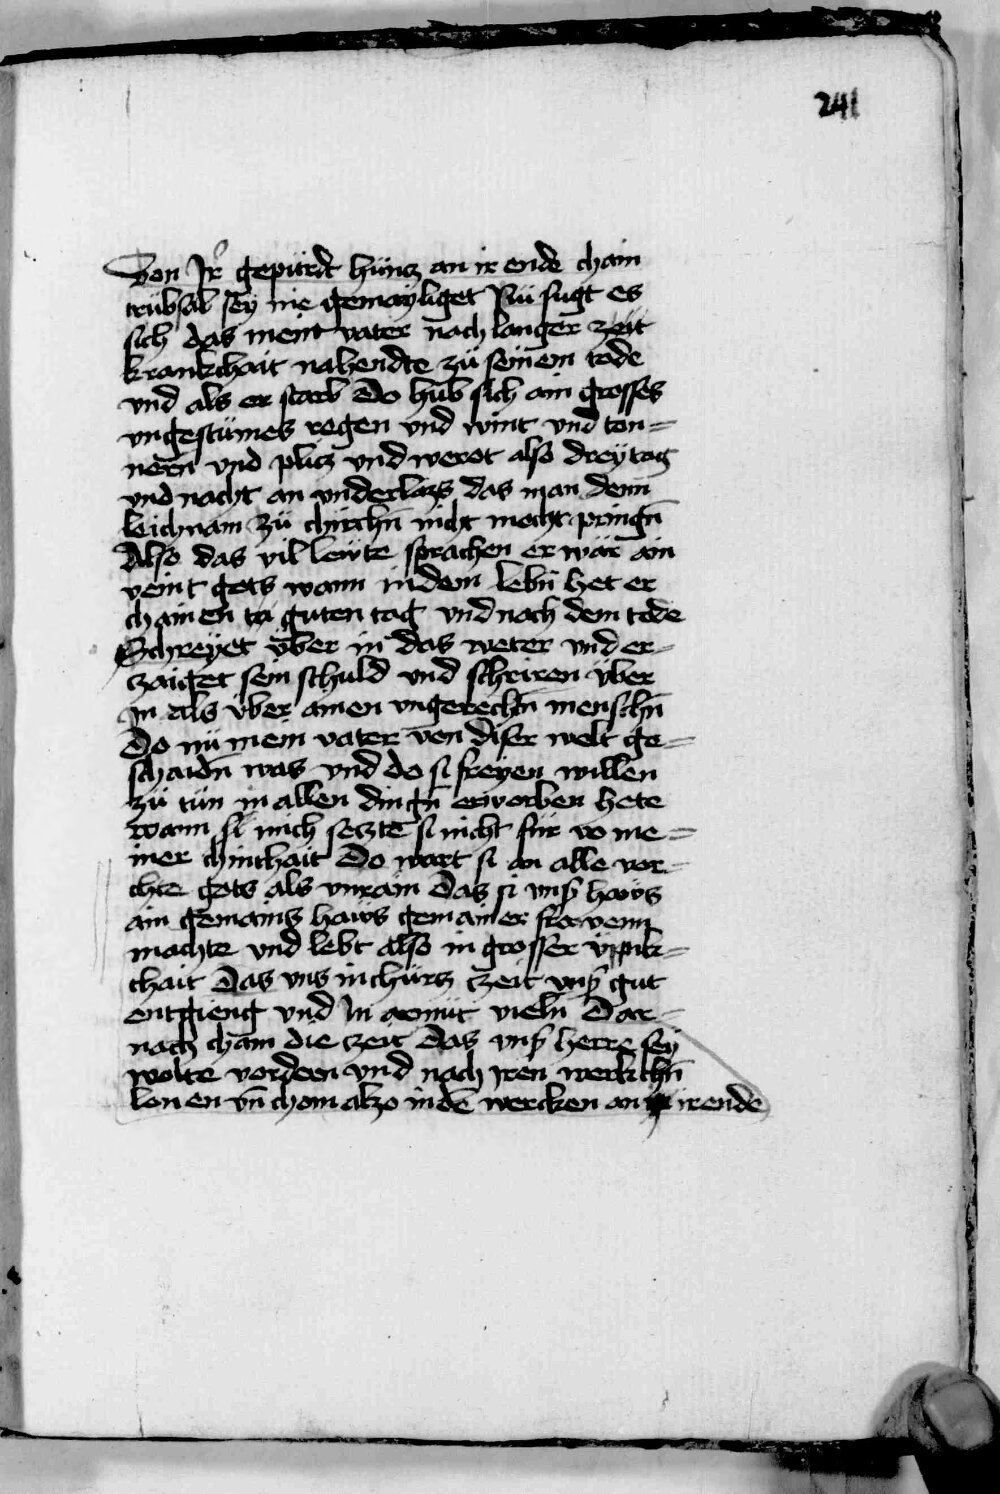 241
Von Jr̊ gepürdt hüncz an ir ende chain
trübsal sey nie gemayliget Nü fugt es
sich das mein vater nach langer zeit
krankchait nahendte zü seinem tode
vnd als er starb Do hüb sich ain grosses
vngestümes regen vnd wint vnd ton=
nern vnd plicz vnd weret also drey tag
vnd nacht an vnderlazs das man denn
leichnam zü chirchn̄ nicht mocht pringn̄
Also das vil lewte sprachen er wär ain
veint gots wann in dem lebn̄ het er
chainen guten tag vnd nach dem tode
Schreyet über in das weter vnd er=
zaiget sein schuld vnd schriren über
in als über ainen vngerechtn̄ menschn̄
Do nü mein vater von diser welt ge=
schaidn̄ was vnd do si freyen willen
zü tün in allen dingn̄ erworben hete
wann si mich seczte si nicht für vo me=
iner chinthait Do wart si an alle vor=
chte gots als vnrain Das si vnß haws
ain gemains haws gemainer frawenn
machte vnd lebt also in grosser üppik=
chait Das vns in chürcz czeit vnß gut
entgieng vnd in armüt vieln̄ Dar=
nach cham die czeit das vnß herre sey
wolte vordern vnd nach iren werkchn̄
lonen vn̄ cham alzo in dē wercken an irende